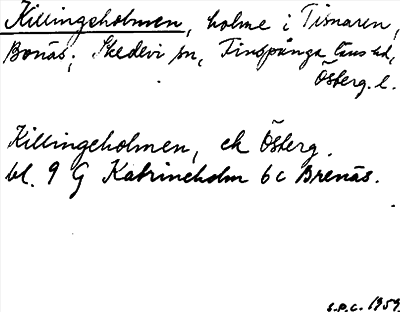 Killingeholmen, holme i Tisnaren,
Bonäs, Skedevi sn, Finspånga läns hd,
Österg. l.
Killingeholmen, ek Österg.
bl. 9 G Katrineholm 6c Brenäs.
S.P.C. 1959